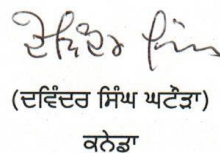 ਦੇਵਿੰਦਰ ਸਿੰਘ
(ਦਵਿੰਦਰ ਸਿੰਘ ਘਟੌੜਾ)
ਕਨੇਡਾ